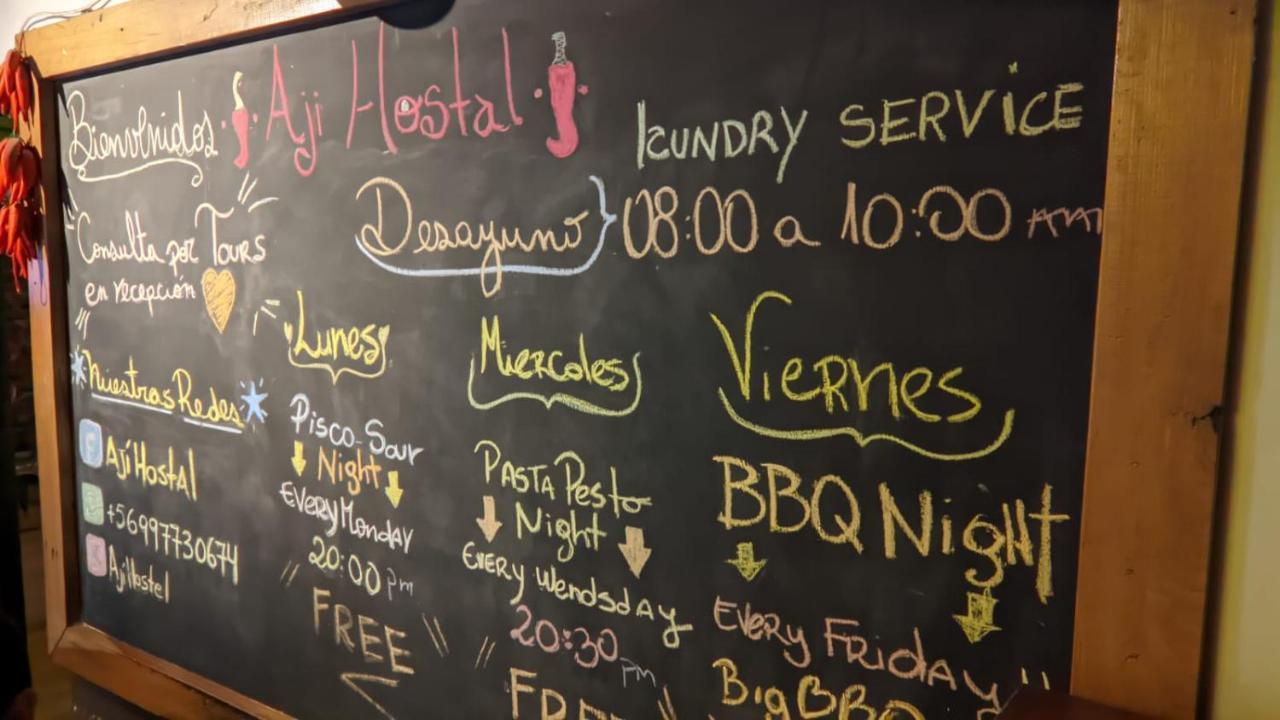 Bienvenidos Aji Hostal
LCUNDRY SERVICE
Desayuno 08:00 a 10:00 AM
Consulta por Tours
en recepción
Nuestras Redes
Aji Hostal
+56997730674
AjiHostel
Lunes
Pisco-Sour
Night
Every Monday
20:00 pm
FREE
Miercoles
Pasta Pesto
Night
Every Wendsday
20:30 pm
Viernes
BBQ Night
Every Friday
Big BBQ